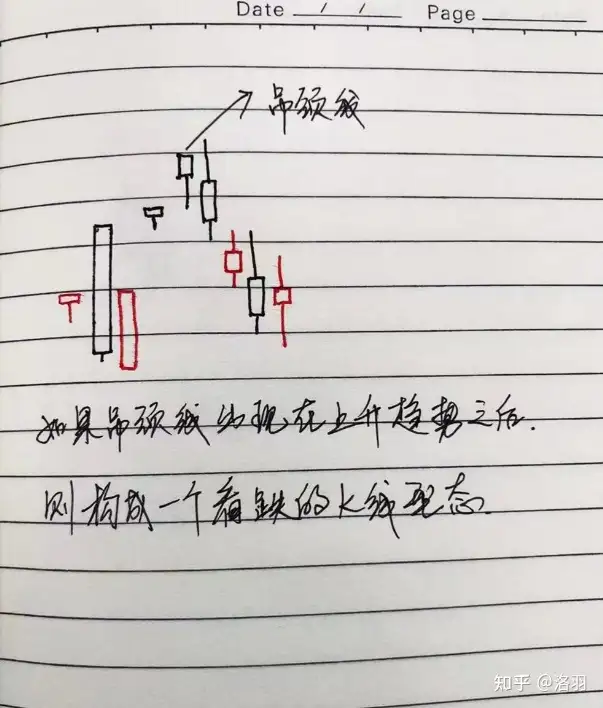 Date / / Page
吊颈线
如果吊颈线出现在上升趋势之后.
则构成一个看跌的K线型态.
知乎 @洛羽